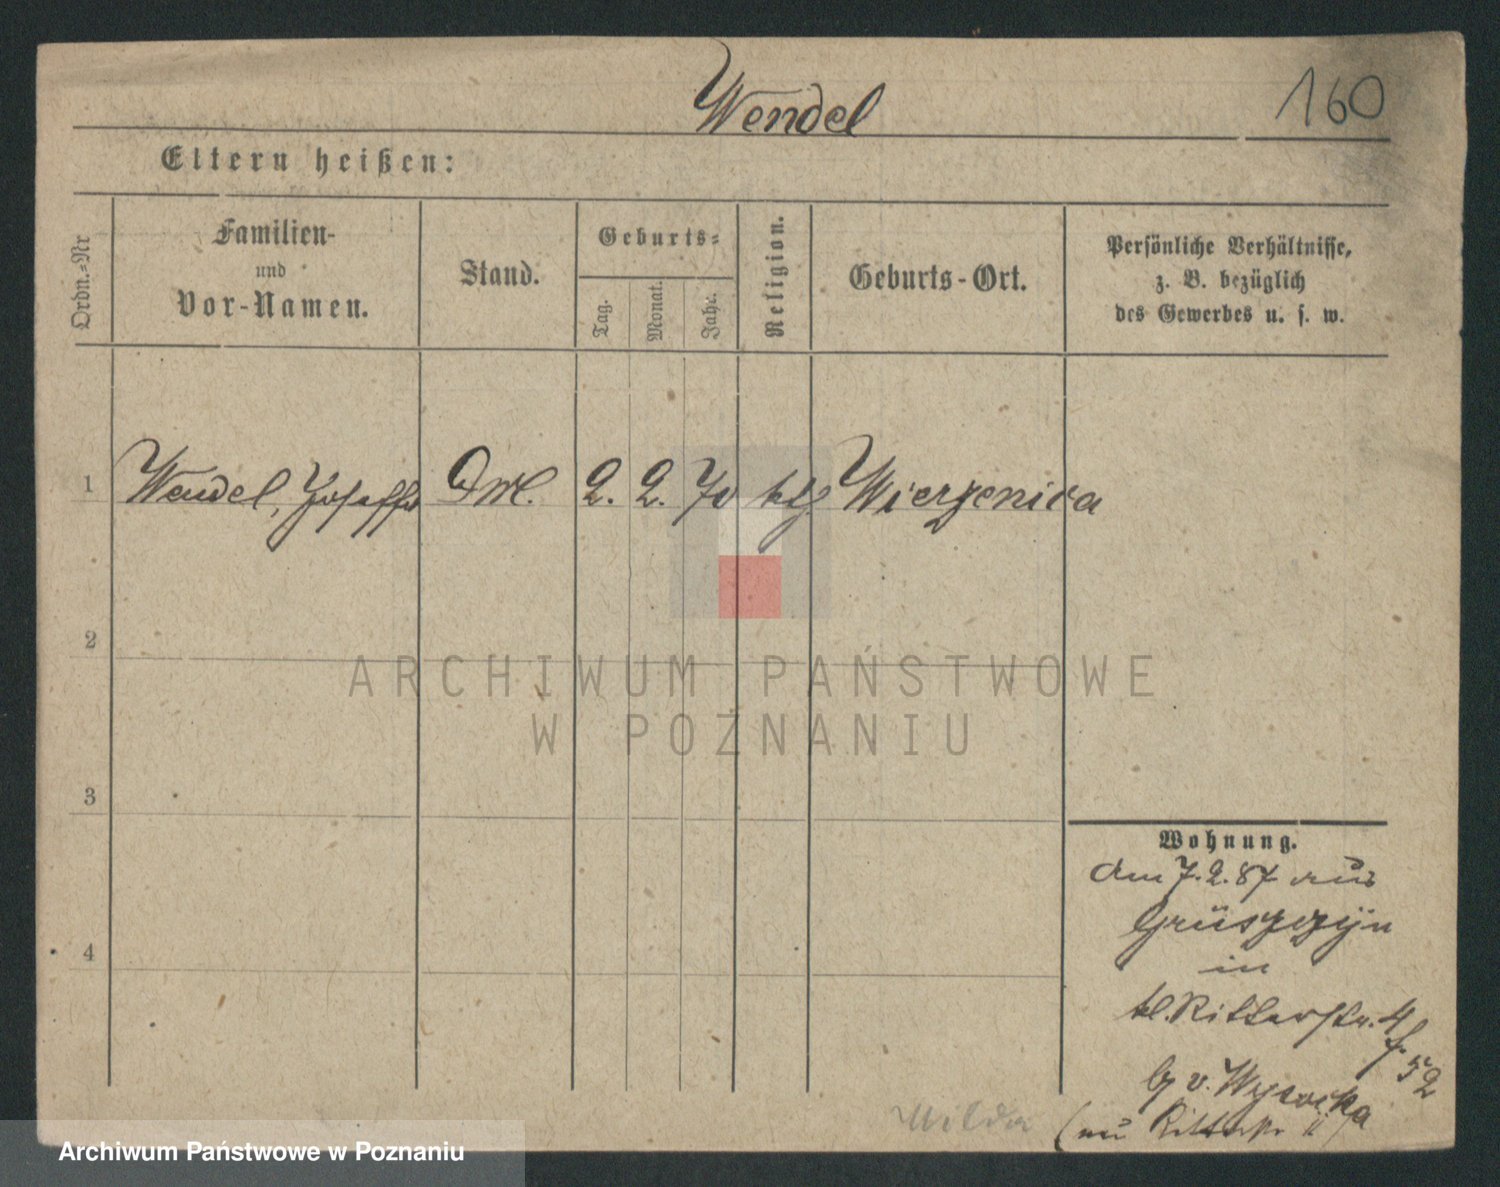 Wendel
160
Eltern heißen:
Ordn.=Nr
Familien-
und
Vor-Namen.
Stand.
Geburts=
Tag.
Monat.
Jahr.
Religion.
Geburts-Ort.
Persönliche Verhältnisse,
z. B. bezüglich
des Gewerbes u. s. w.
1 Wendel, Josepha 2. 2. 70 ktg. Wierzenica
2
3
4
Wohnung.
am 7.2.87 aus
in
kl. Ritterstr. 4
52
v. Wysocka
Wilda
ARCHIWUM PAŃSTWOWE
W POZNANIU
Archiwum Państwowe w Poznaniu